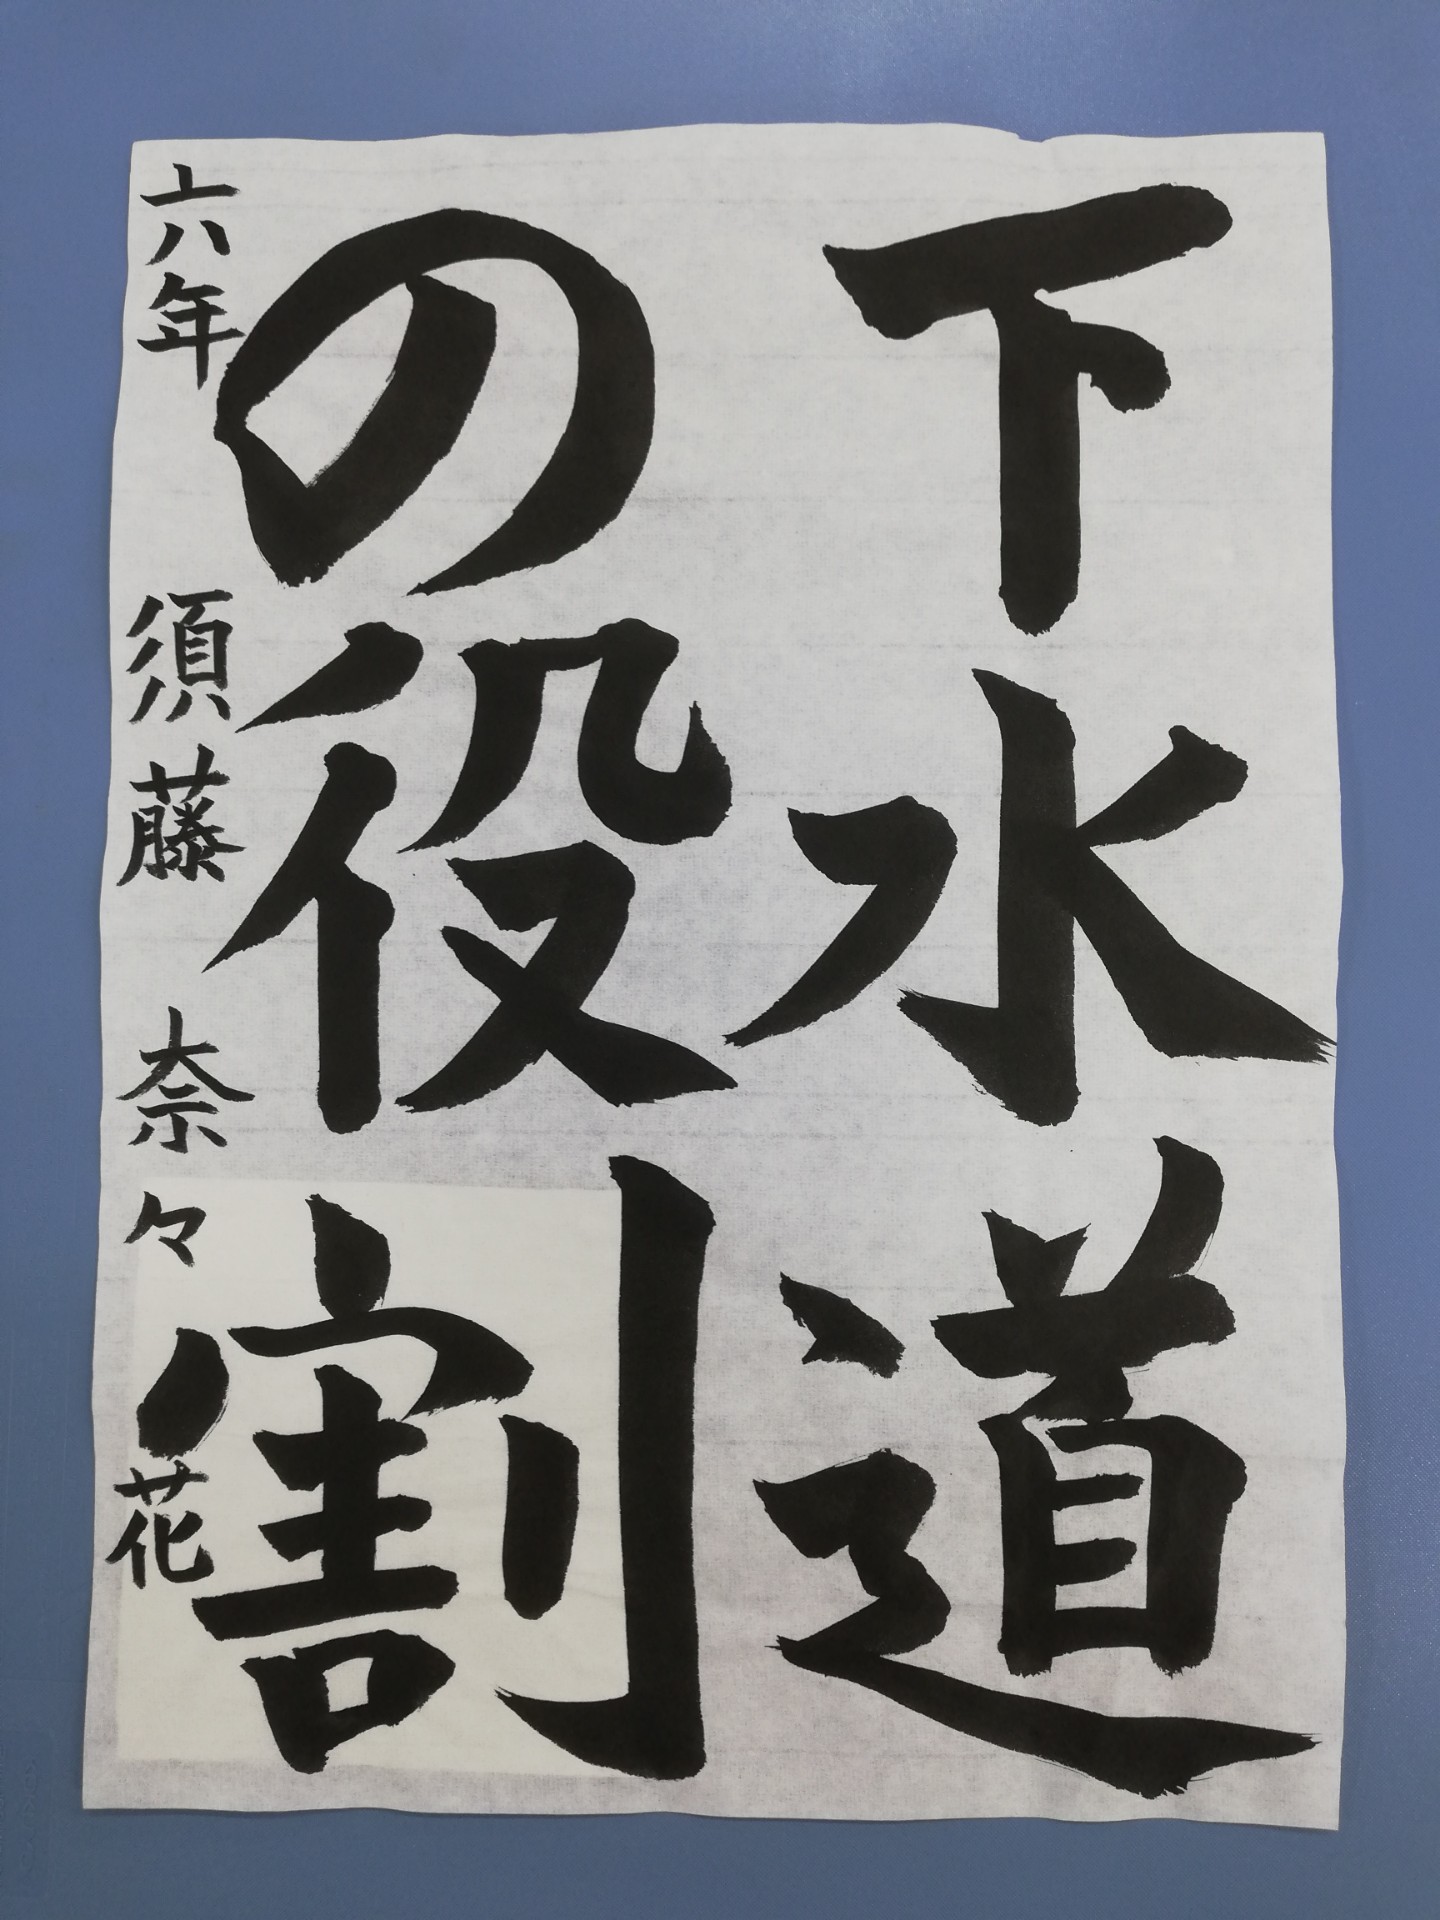 下水道
の役割
六年 須藤 奈々花